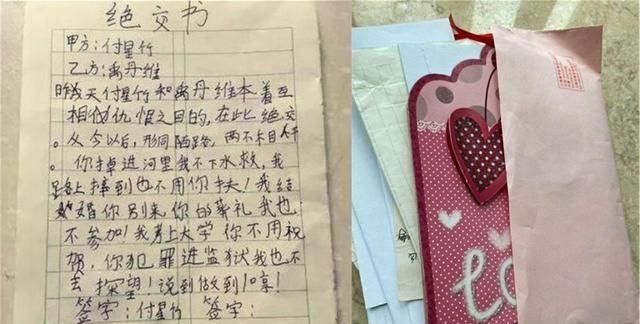 绝交书
甲方:付星竹
乙方:禹丹维
昨天付星竹和禹丹维本着互
相仇恨之目的,在此绝交
。从今以后,形同陌路,两不相干
。你掉进河里我不下水救,我
路上摔到也不用你扶!我结
婚你别来,你的葬礼我也
不参加!我考上大学你不用祝
贺,你犯罪进监狱我也不
去探望!说到做到!哼!
签字:付星竹 签字: